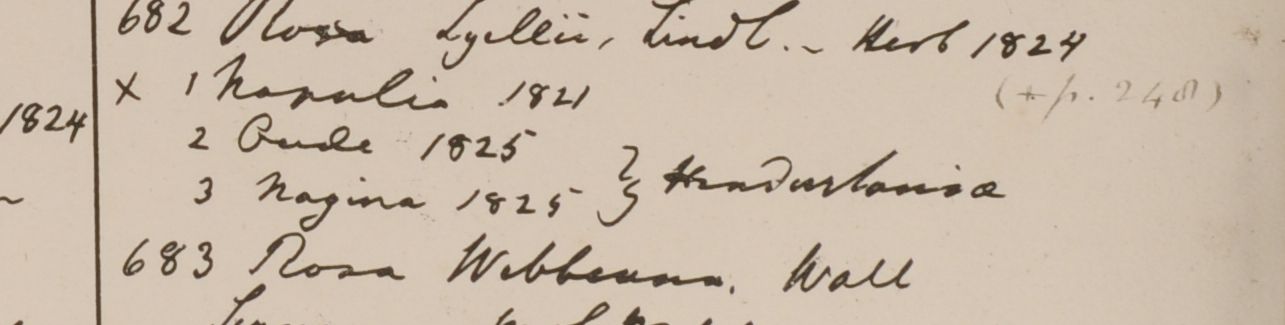 682 Rosa Lyellii, Lindl. ~ Herb 1824
x 1 Napalia 1821 (+ p. 248)
1824
2 Oude 1825
3 Nagina 1825 } Hindustaniae
683 Rosa Webbeana. Wall